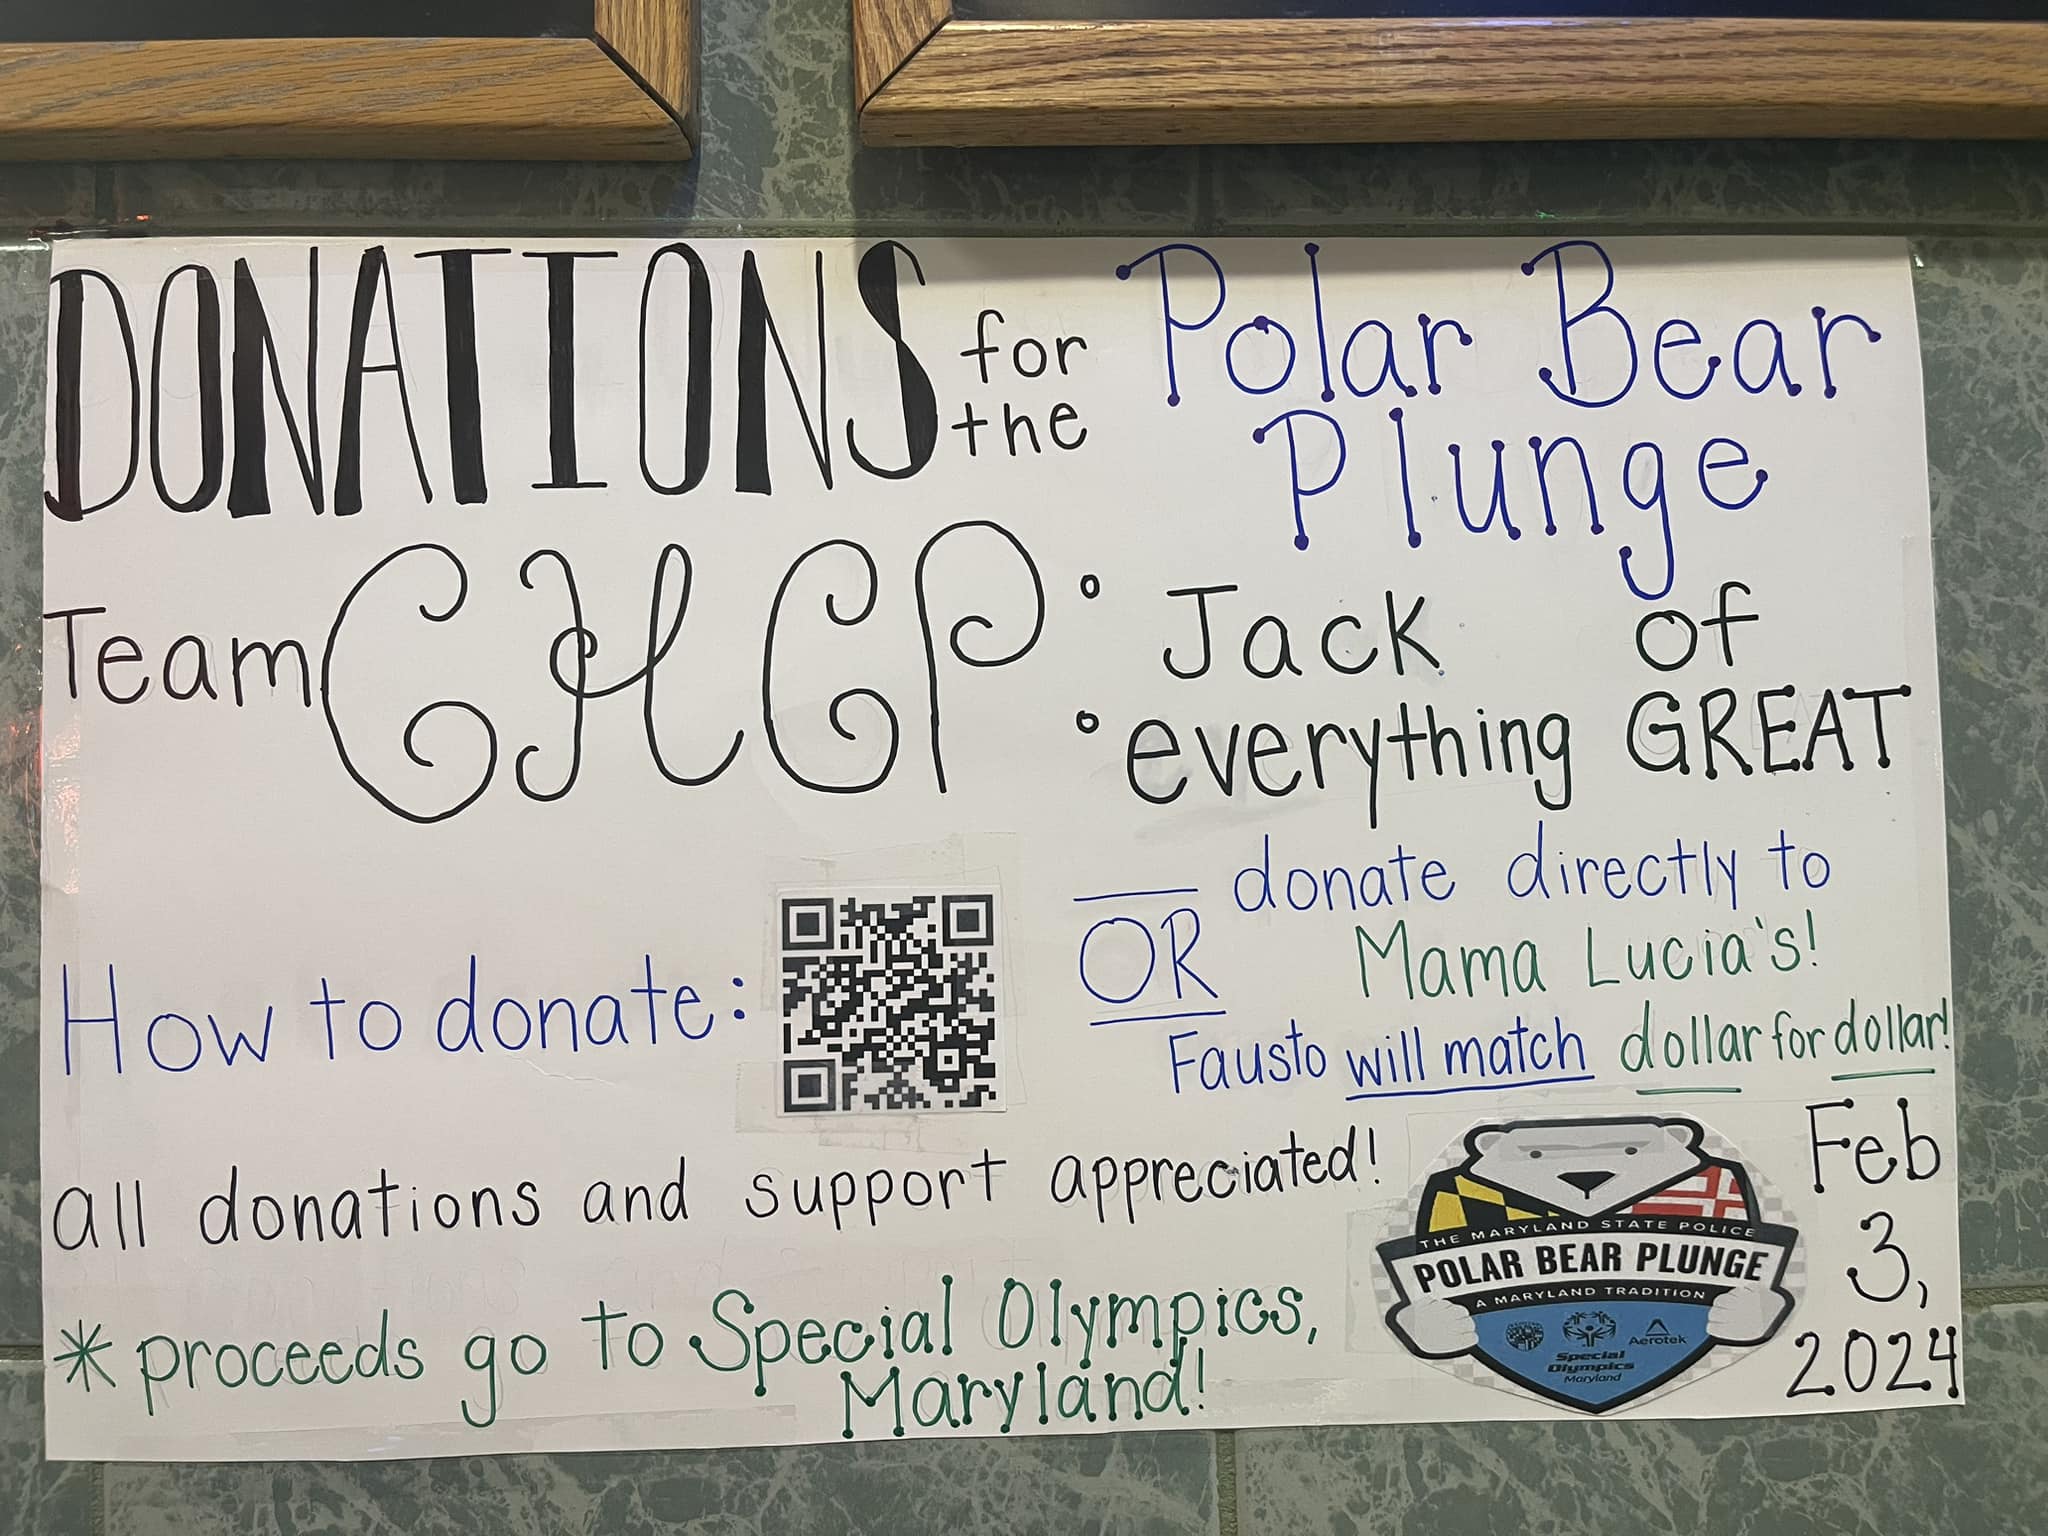 DONATIONS for the Polar Bear Plunge
Team CHCP
° Jack of
° everything GREAT
How to donate:
OR donate directly to
Mama Lucia's!
Fausto will match dollar for dollar!
all donations and support appreciated!
* proceeds go to Special Olympics,
Maryland!
THE MARYLAND STATE POLICE
POLAR BEAR PLUNGE
A MARYLAND TRADITION
Special
Olympics
Maryland
Aerotek
Feb
3,
2024